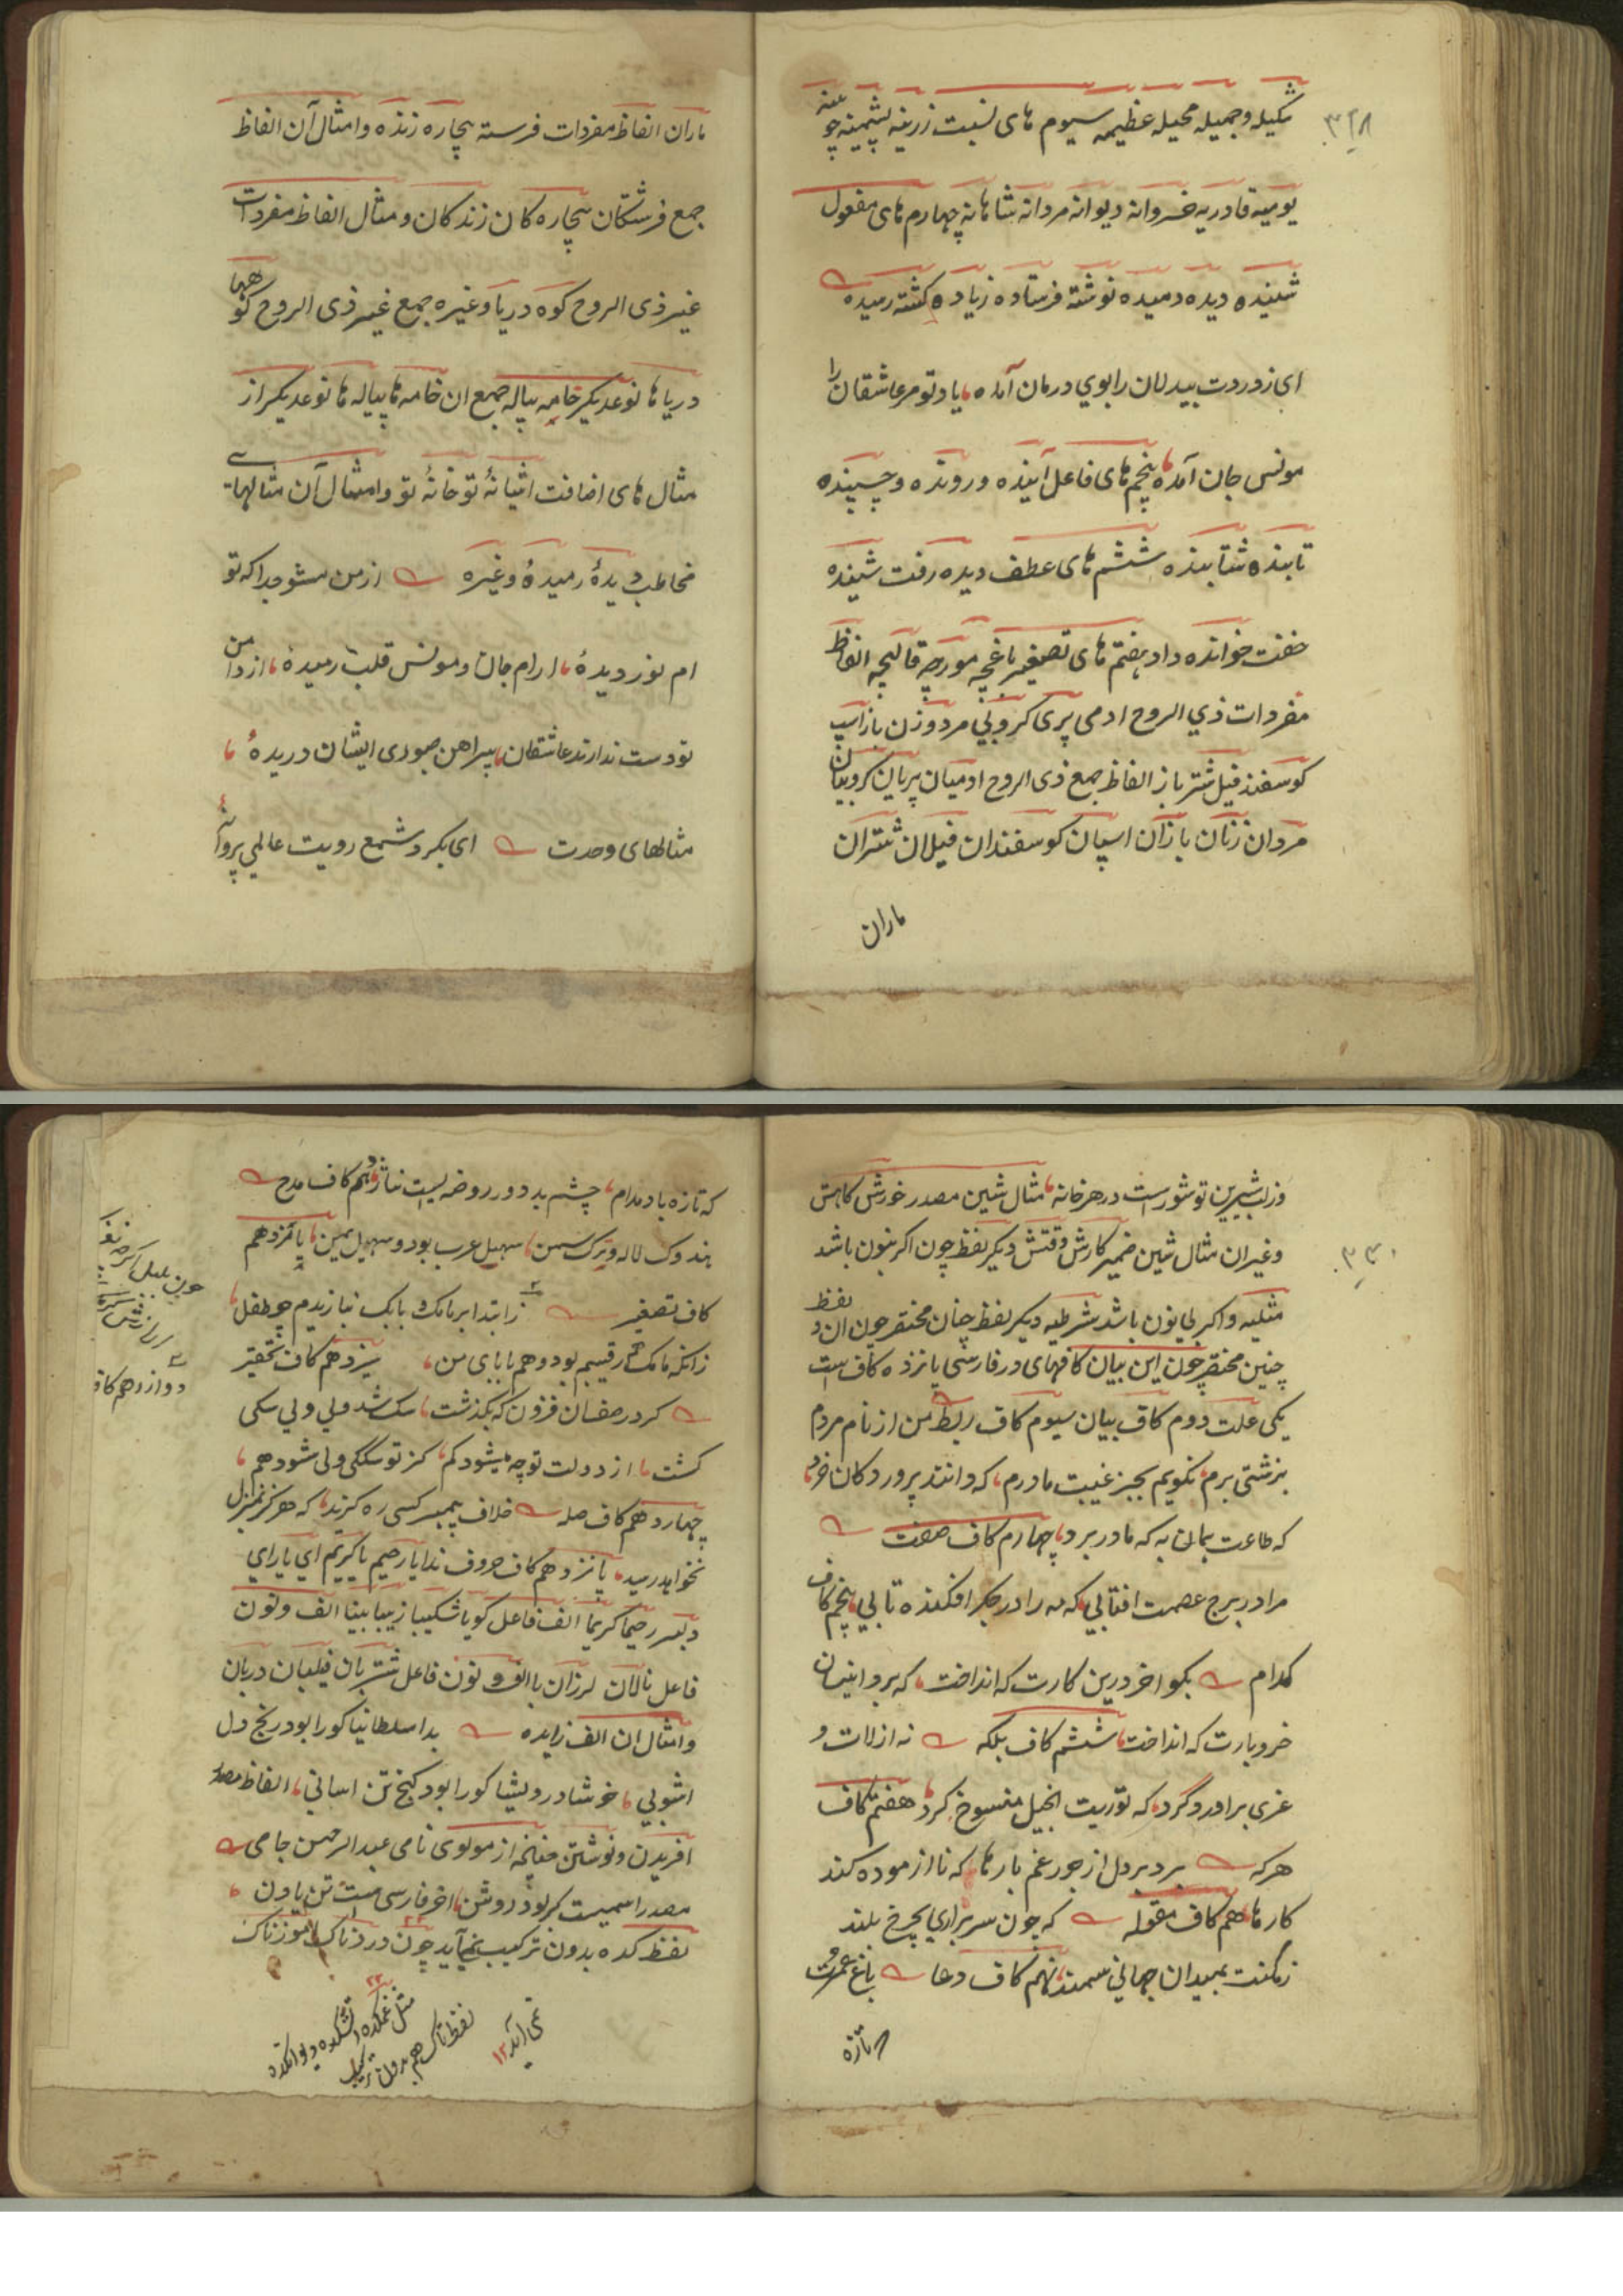 ۳۲۸
شکیله و جمیله محیله عظیمه سیوم های نسبت زرینه پشمینه چوبینه
یومیه قادریه خسروانه دیوانه مردانه شاهانه چهارم های مفعول
شنیده دیده دمیده نوشته فرستاده زیاده کشته رمیده
ای ز دردت بیدلان را بوی درمان آمده یاد تو مر عاشقان را
مونس جان آمده پنجم های فاعل آینده و رونده و چسپنده
تابنده شتابنده ششم های عطف دیده رفت شینده
خفت خوانده داد هفتم های تصغیر باغچه مورچه قالیچه الفاظ
مفردات ذی الروح ادمی پری کروبی مرد و زن باز اسپ
کوسفند فیل شتر باز الفاظ جمع ذی الروح ادمیان پریان کروبیان
مردان زنان بازان اسپان کوسفندان فیلان شتران
ماران
ماران الفاظ مفردات فرسته بچاره زنده و امثال آن الفاظ
جمع فرشتکان بچاره کان زندکان و مثال الفاظ مفردات
غیر ذی الروح کوه دریا و غیره جمع غیر ذی الروح کوهها
دریاها نوعدیکر خامه پیاله جمع ان خامه ها پیاله ها نوعدیکر از
مثال های اضافت اشیانهٔ تو خانهٔ تو و امثال آن مثالهای
مخاطب دیدهٔ رمیدهٔ وغیره از من مشو جدا که تو
ام نور دیدهٔ ارام جان و مونس قلب رمیدهٔ از دامن
تو دست ندارند عاشقان پیراهن صبوری ایشان دریدهٔ
مثالهای وحدت ای بکرد شمع رویت عالمی پروانه
۳۳۰
وز لب شیرین تو شورست در هر خانه مثال شین مصدر خورش کاهش
وغیر ان مثال شین ضمیر کارش وقتش دیکر لفظ چون اکر بنون باشد
مثلیه و اکر بی نون باشد شرطیه دیکر لفظ چنان مختصر چون ان و لفظ
چنین مختصر چون این بیان کافهای در فارسی پانزده کاف است
یکی علت دوم کاف بیان سیوم کاف ربط من از نام مردم
بزشتی برم نکویم بجز غیبت مادرم که دانند پرورده کان خرد
که طاعت همان به که مادر برد چهارم کاف صفت
مرا در برج عصمت افتابی که مه را در جکر افکنده تابی پنجم کاف
کدام بکو اخر درین کارت که انداخت که برو اینسان
خر و بارت که انداخت ششم کاف بلکه نه از لات و
عزی براورد گرد که توریت انجیل منسوخ کرد هفتم کاف
هرکه برد بر دل از جور غم بارها که نا ازموده کند
کارها هشتم کاف مقوله که چون سر براری بچرخ بلند
زمکنت بمیدان جهانی سمند نهم کاف دعا باغ عمرت
که تازه
که تازه باد مدام چشم بد دور روضه ایست نیاز دهم کاف مدح
هندوک لاله و ترک سمن سهیل عرب بود و سهیل یمن یانزدهم
کاف تصغیر ز ابتدا بر مامک و بابک نیازیدم چو طفل
زانکه مامک رقیبم بود و هم بابای من سیزدهم کاف تحقیر
کرد رمضان فزون که بکذشت سک شد ولی ولی سکی
کشت از دولت تو چه میشود کم کز تو سککی ولی شود هم
چهاردهم کاف صله خلاف پیمبر کسی ره کزید که هرکز بمنزل
نخواهد رسید پانزدهم کاف حروف ندا یا رحیم یا کریم ای یارای
دبیر رحیما کریما الف فاعل کویا شکیبا زیبا بینا الف و نون
فاعل نالان لرزان با الف و نون فاعل شتربان فیلبان دربان
وامثال ان الف زایده بدا سلطانیا کو را بود رنج دل
اشوبی خوشا درویشیا کو را بود کنج تن اسانی الفاظ مصدر
افریدن و نوشتن چنانچه از مولوی نامی عبد الرحمن جامی
مصدر اسمیست کر بود روشن اخر فارسی ست تن یا دن
لفظ کده بدون ترکیب نمی آید چون دردناک اموزناک
چون بلبل
دوازدهم کاف
مثل غمکده اتشکده و
لفظ ناک هم بدون ترکیب
نمی آید ۱۲